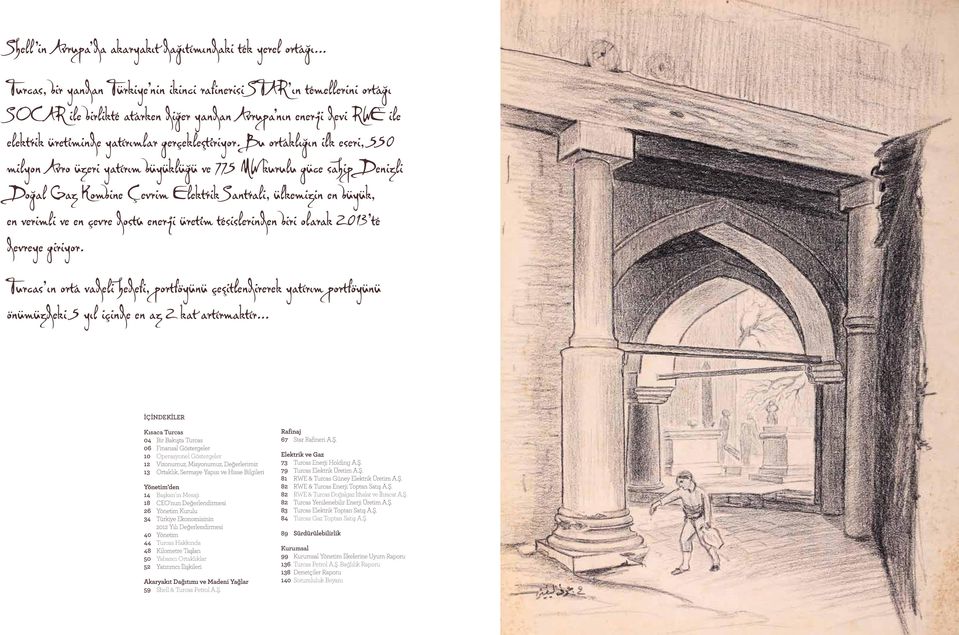 Shell'in Avrupa'da akaryakıt dağıtımındaki tek yerel ortağı...
Turcas, bir yandan Türkiye'nin ikinci rafinerisi STAR'ın temellerini ortağı
SOCAR ile birlikte atarken diğer yandan Avrupa'nın enerji devi RWE ile
elektrik üretiminde yatırımlar gerçekleştiriyor. Bu ortaklığın ilk eseri, 550
milyon Avro üzeri yatırım büyüklüğü ve 775 MW kurulu güce sahip Denizli
Doğal Gaz Kombine Çevrim Elektrik Santrali, ülkemizin en büyük,
en verimli ve en çevre dostu enerji üretim tesislerinden biri olarak 2013'te
devreye giriyor.
Turcas'ın orta vadeli hedefi, portföyünü çeşitlendirerek yatırım portföyünü
önümüzdeki 5 yıl içinde en az 2 kat artırmaktır...
İÇİNDEKİLER
Kısaca Turcas
04 Bir Bakışta Turcas
06 Finansal Göstergeler
10 Operasyonel Göstergeler
12 Vizyonumuz, Misyonumuz, Değerlerimiz
13 Ortaklık, Sermaye Yapısı ve Hisse Bilgileri
Yönetim'den
14 Başkan'ın Mesajı
18 CEO'nun Değerlendirmesi
26 Yönetim Kurulu
34 Türkiye Ekonomisinin
2012 Yılı Değerlendirmesi
40 Yönetim
44 Turcas Hakkında
48 Kilometre Taşları
50 Yabancı Ortaklıklar
52 Yatırımcı İlişkileri
Akaryakıt Dağıtımı ve Madeni Yağlar
59 Shell & Turcas Petrol A.Ş.
Rafinaj
67 Star Rafineri A.Ş.
Elektrik ve Gaz
73 Turcas Enerji Holding A.Ş.
79 Turcas Elektrik Üretim A.Ş.
81 RWE & Turcas Güney Elektrik Üretim A.Ş.
82 RWE & Turcas Enerji Toptan Satış A.Ş.
82 RWE & Turcas Doğalgaz İthalat ve İhracat A.Ş.
82 Turcas Yenilenebilir Enerji Üretim A.Ş.
83 Turcas Elektrik Toptan Satış A.Ş.
84 Turcas Gaz Toptan Satış A.Ş.
89 Sürdürülebilirlik
Kurumsal
99 Kurumsal Yönetim İlkelerine Uyum Raporu
136 Turcas Petrol A.Ş. Bağlılık Raporu
138 Denetçiler Raporu
140 Sorumluluk Beyanı